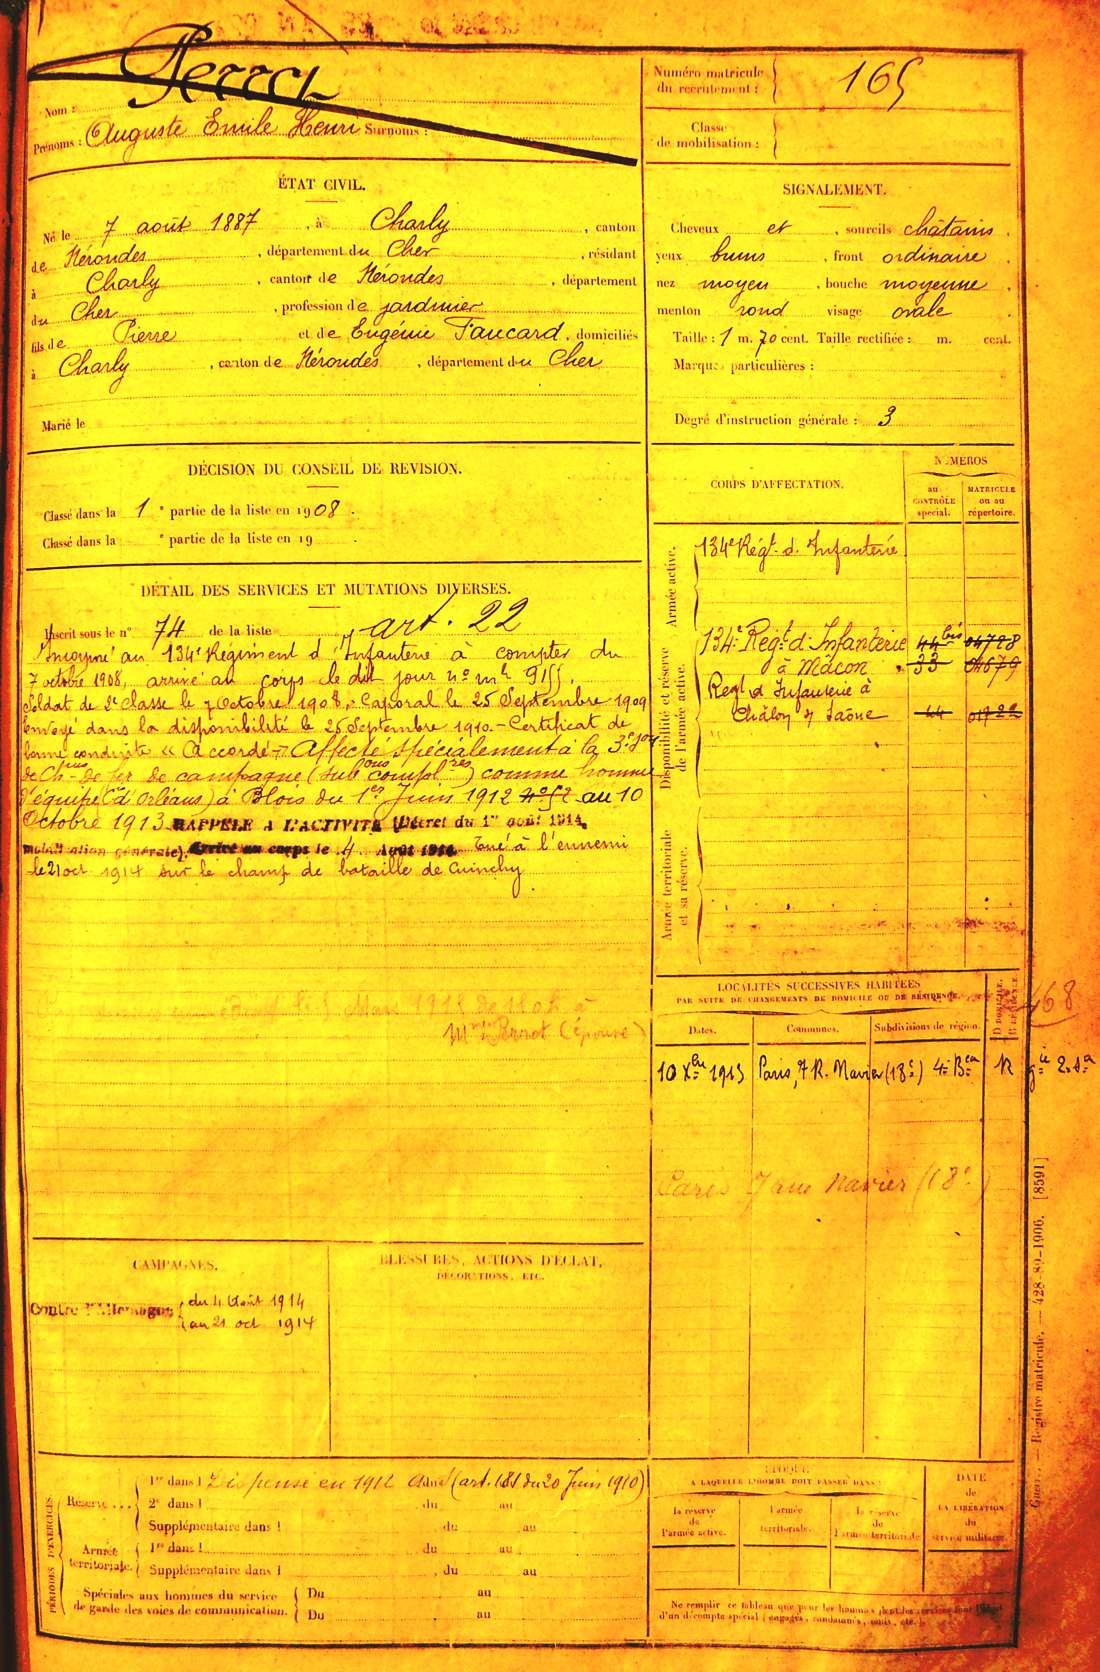 Perrot
Nom :
Prénoms : Auguste Emile Henri Surnoms :
Numéro matricule
du recrutement : 165
Classe
de mobilisation :
ÉTAT CIVIL.
Né le 7 août 1887, à Charly, canton
de Nérondes, département du Cher, résidant
à Charly, canton de Nérondes, département
du Cher, profession de jardinier
fils de Pierre et de Eugénie Faucard, domiciliés
à Charly, canton de Nérondes, département du Cher
Marié le
SIGNALEMENT.
Cheveux et, sourcils châtains,
yeux bruns, front ordinaire,
nez moyen, bouche moyenne,
menton rond visage ovale
Taille : 1 m. 70 cent. Taille rectifiée : m. cent.
Marques particulières :
Degré d'instruction générale : 3
DÉCISION DU CONSEIL DE REVISION.
Classé dans la 1e partie de la liste en 1908.
Classé dans la e partie de la liste en 19
DÉTAIL DES SERVICES ET MUTATIONS DIVERSES.
Inscrit sous le n° 74 de la liste art. 22
Incorporé au 134e Régiment d'Infanterie à compter du
7 octobre 1908, arrivé au corps le dit jour n° mle
Soldat de 2e classe le 7 Octobre 1908. Caporal le 25 Septembre 1909
Envoyé dans la disponibilité le 25 Septembre 1910. - Certificat de
bonne conduite « Accordé ». Affecté spécialement à la 3e Son
de Chins de fer de campagne (subons complres) comme homme
d'équipe (Cie d'Orléans) à Blois du 1er Juin 1912 au 10
Octobre 1913. RAPPELÉ A L'ACTIVITÉ (Décret du 1er août 1914,
mobilisation générale). Arrivé au corps le 4 Août 1914. Tué à l'ennemi
le 21 oct 1914 sur le champ de bataille de Cuinchy
Mars 1918 de
Mme Perrot (épouse)
CORPS D'AFFECTATION.
NUMÉROS
au
CONTRÔLE
spécial.
MATRICULE
ou au
répertoire.
Armée active.
134e Régt d'Infanterie
Disponibilité et réserve
de l'armée active.
134e Régt d'Infanterie 44 bis 04728
à Mâcon 33 04679
Régt d'Infanterie à
Châlon s/ Saône 44 01722
Armée territoriale
et sa réserve.
LOCALITÉS SUCCESSIVES HABITÉES
PAR SUITE DE CHANGEMENTS DE DOMICILE OU DE RÉSIDENCE.
Dates. Communes. Subdivisions de région.
D DOMICILE.
R RÉSIDENCE.
468
10 Xbre 1913 Paris, 7 R. Navier (18e) 4e Beau R
Paris 7 rue Navier (18e)
CAMPAGNES.
Contre l'Allemagne { du 4 Août 1914
{ au 21 oct 1914
BLESSURES, ACTIONS D'ÉCLAT,
DÉCORATIONS, ETC.
PÉRIODES D'EXERCICES
Réserve...
1re dans l Dispensé en 1912 (art. du 20 Juin 1910)
2e dans l du au
Supplémentaire dans l du au
Armée
territoriale.
1re dans l du au
Supplémentaire dans l, du au
Spéciales aux hommes du service
de garde des voies de communication.
Du au
Du au
ÉPOQUE
A LAQUELLE L'HOMME DOIT PASSER DANS :
la réserve
de
l'armée active.
l'armée
territoriale.
la réserve
de
l'armée territoriale
DATE
de
LA LIBÉRATION
du
service militaire.
Ne remplir ce tableau que pour les hommes dont les services font l'objet
d'un décompte spécial (engagés, condamnés, omis, etc.).
Guerre. — Registre matricule. — 428-89-1906. [8591]